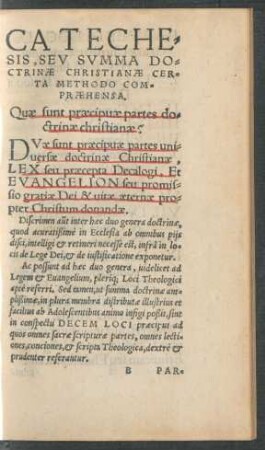 CATECHE-
SIS, SEV SVMMA DO-
CTRINÆ CHRISTIANÆ CER-
TA METHODO COM-
PRÆHENSA.
Quæ sunt præcipuæ partes do-
ctrinæ christianæ?
DVæ sunt præcipuæ partes uni-
uersæ doctrinæ Christianæ,
LEX seu præcepta Decalogi, Et
EVANGELION seu promissio
gratiæ Dei & vitæ æternæ pro-
pter Christum donandæ.
Discrimen aũt inter hec duo genera doctrinæ,
quod accuratissime in Ecclesia ab omnibus pijs
disci, intelligi & retineri necesse est, infrà in lo-
cis de Lege Dei, & de iustificatione exponetur.
Ac possunt ad hec duo genera, uidelicet ad
Legem & Euangelium, pleriq; Loci Theologici
aptè referri. Sed tamen, ut summa doctrinæ am-
plissimæ, in plura membra distributæ illustrius et
facilius ab Adolescentibus animo infigi possit, sint
in conspectu DECEM LOCI præcipui ad
quos omnes sacræ scripturæ partes, omnes lectio-
nes, conciones, & scripta Theologica, dextrè &
prudenter referantur.
B PAR-